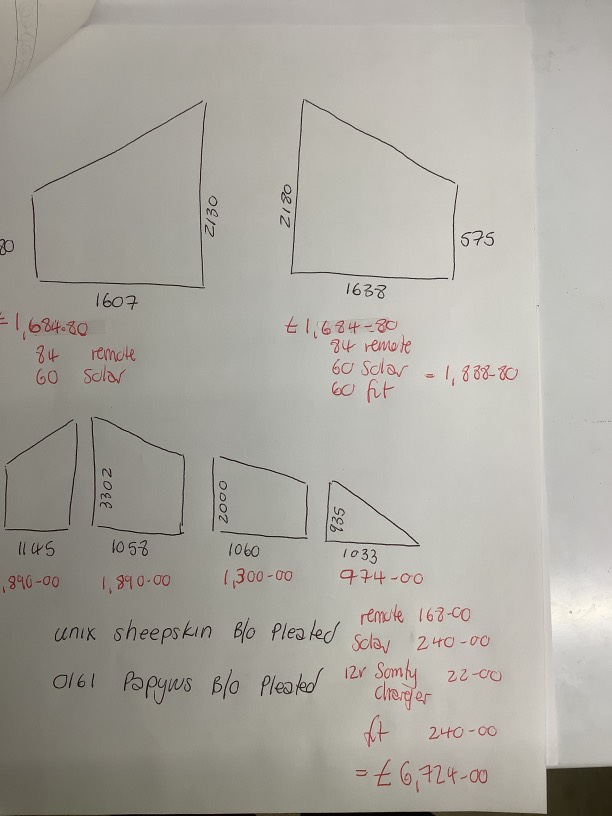 2130
80
1607
2180
575
1638
£1,684-80
84 remote
60 solar
£1,684-80
84 remote
60 solar
60 fit
= 1,888-80
1145
,890-00
3302
1058
1,890-00
2000
1060
1,300-00
935
1033
974-00
unix sheepskin B/o Pleated
0161 Papyrus B/o Pleated
remote 168-00
Solar 240-00
12v Somfy 22-00
charger
fit 240-00
= £6,724-00